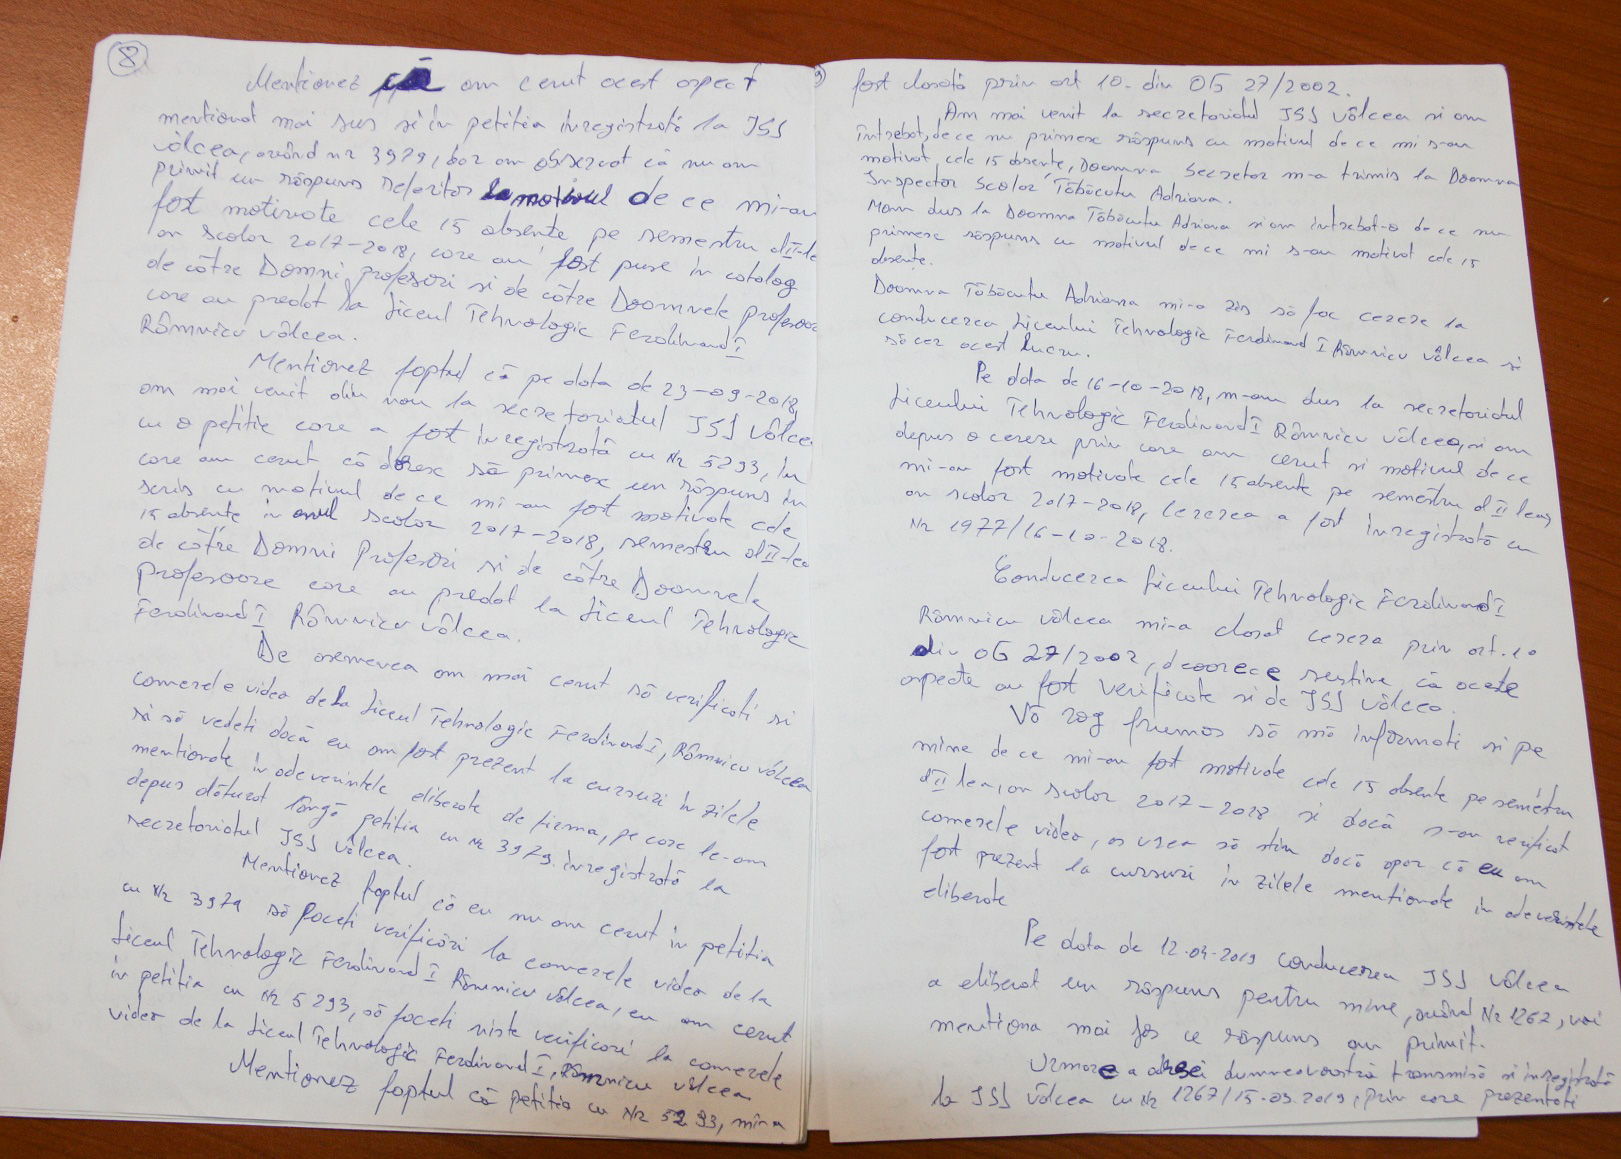 8
Mentionez că am cerut acest aspect
mentionat mai sus si în petitia înregistrată la ISJ
Vâlcea, având nr 3979, dar am observat că nu am
primit un răspuns referitor la motivul de ce mi-au
fost motivate cele 15 absente pe semestru al II-lea
an scolar 2017-2018, care au fost puse în catalog
de către Domni profesori si de către Doamnele profesoare
care au predat la Liceul Tehnologic Ferdinand I
Râmnicu Vâlcea.
Mentionez faptul că pe data de 23-09-2018,
am mai venit din nou la secretariatul ISJ Vâlcea
cu o petitie care a fost înregistrată cu Nr 5293, în
care am cerut că doresc să primesc un răspuns în
scris cu motivul de ce mi-au fost motivate cele
15 absente în anul scolar 2017-2018, semestru al II-lea
de către Domni Profesori si de către Doamnele
Profesoare care au predat la Liceul Tehnologic
Ferdinand I Râmnicu Vâlcea.
De asemenea am mai cerut să verificati si
camerele video de la Liceul Tehnologic Ferdinand I, Râmnicu Vâlcea
si să vedeti dacă eu am fost prezent la cursuri în zilele
mentionate în adeverintele eliberate de firma, pe care le-am
depus alăturat lângă petitia cu Nr 3979 înregistrată la
secretariatul ISJ Vâlcea.
Mentionez faptul că eu nu am cerut în petitia
cu Nr 3979 să faceti verificări la camerele video de la
Liceul Tehnologic Ferdinand I Râmnicu Vâlcea, eu am cerut
în petitia cu Nr 5293, să faceti niste verificari la camerele
video de la Liceul Tehnologic Ferdinand I, Râmnicu Vâlcea
Mentionez faptul că petitia cu Nr 5293, mi-a
fost clasată prin art 10. din OG 27/2002.
Am mai venit la secretariatul ISJ Vâlcea si am
întrebat, de ce nu primesc răspuns cu motivul de ce mi s-au
motivat, cele 15 absente, Doamna Secretar m-a trimis la Doamna
Inspector Scolar Tăbăcutu Adriana.
M-am dus la Doamna Tăbăcutu Adriana si am întrebat-o de ce nu
primesc răspuns cu motivul de ce mi s-au motivat cele 15
absente.
Doamna Tăbăcutu Adriana mi-a zis să fac cerere la
conducerea Liceului Tehnologic Ferdinand I Râmnicu Vâlcea si
să cer acest lucru.
Pe data de 16-10-2018, m-am dus la secretariatul
Liceului Tehnologic Ferdinand I Râmnicu Vâlcea, si am
depus o cerere prin care am cerut si motivul de ce
mi-au fost motivate cele 15 absente pe semestru al II lea,
an scolar 2017-2018, cererea a fost înregistrată cu
Nr 1977/16-10-2018.
Conducerea Liceului Tehnologic Ferdinand I
Râmnicu Vâlcea mi-a clasat cererea prin art. 10
din OG 27/2002, deoarece sustine că aceste
aspecte au fost verificate si de ISJ Vâlcea.
Vă rog frumos să mă informati si pe
mine de ce mi-au fost motivate cele 15 absente pe semestru
al II lea, an scolar 2017-2018 si dacă s-au verificat
camerele video, as vrea să stiu dacă apar că eu am
fost prezent la cursuri în zilele mentionate în adeverintele
eliberate
Pe data de 12.04-2019 conducerea ISJ Vâlcea
a eliberat un răspuns pentru mine, având Nr 1267, voi
mentiona mai jos ce răspuns am primit.
Urmare a adresei dumneavoastră transmisă si înregistrată
la ISJ Vâlcea cu Nr 1267/15.03.2019, prin care prezentati